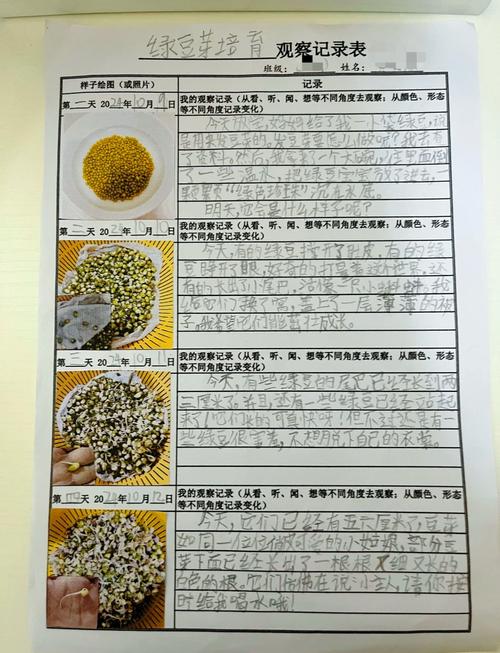 绿豆芽培育 观察记录表
班级: 姓名:
样子绘图（或照片） 记录
第一天 2024年10月9日
我的观察记录（从看、听、闻、想等不同角度去观察；从颜色、形态等不同角度记录变化）
今天放学,妈妈给了我一小袋绿豆,说
是用来发豆芽的。发豆芽要怎么做呢?我去看了
资料。然后,我拿来了一个大碗,往里面倒
了一些温水,把绿豆宝宝放了进去。一
颗颗“绿色珍珠”沉在水底。
明天,还会是什么样子呢?
第二天 2024年10月10日
我的观察记录（从看、听、闻、想等不同角度去观察；从颜色、形态等不同角度记录变化）
今天,有的绿豆撑开了肚皮,有的绿
豆睁开了眼,好奇的打量着这个世界,还
有的长出了小尾巴,活像一只小蝌蚪。我
给它们换了窝,盖上了一层薄薄的被
子。我希望它们能茁壮成长。
第三天 2024年10月11日
我的观察记录（从看、听、闻、想等不同角度去观察；从颜色、形态等不同角度记录变化）
今天,有些绿豆的尾巴已经长到两
三厘米了。并且还有一些绿豆已经站起
来了!它们长的可真快呀!但不过还是有一
些绿豆很害羞,不想脱下自己的衣裳。
第四天 2024年10月12日
我的观察记录（从看、听、闻、想等不同角度去观察；从颜色、形态等不同角度记录变化）
今天,它们已经有五六厘米了,豆芽
如同一位位 可爱的小姑娘,部分豆
芽下面已经长出了一根根又细又长的
白色的根。它们仿佛在说:小主人,请你按
时给我喝水哦!